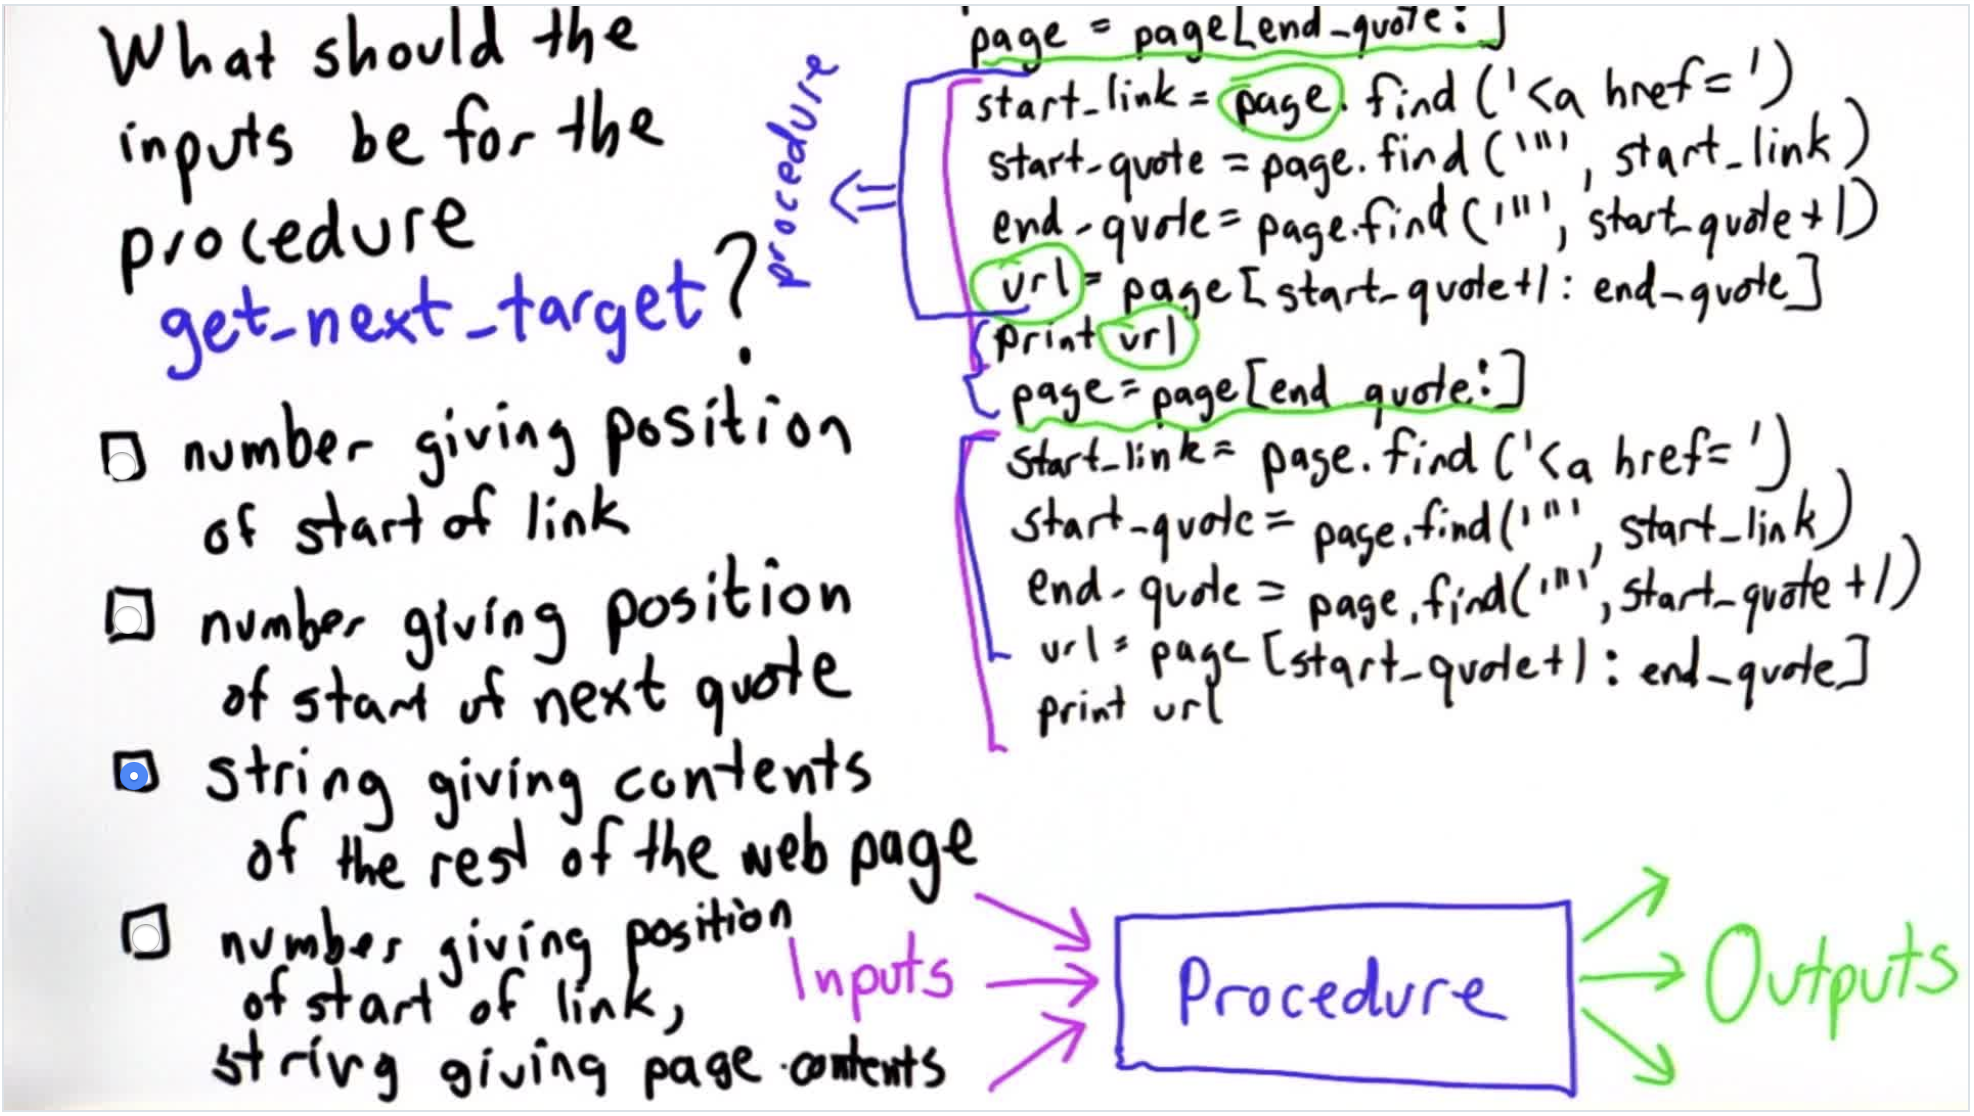 What should the
inputs be for the
procedure
get_next_target?
number giving position
of start of link
number giving position
of start of next quote
string giving contents
of the rest of the web page
number giving position
of start of link,
string giving page contents
procedure
page = page[end_quote:]
start_link = page.find('<a href=')
start_quote = page.find('"', start_link)
end_quote = page.find('"', start_quote+1)
url = page[start_quote+1:end_quote]
print url
page = page[end_quote:]
start_link = page.find('<a href=')
start_quote = page.find('"', start_link)
end_quote = page.find('"', start_quote+1)
url = page[start_quote+1:end_quote]
print url
Inputs
Procedure
Outputs